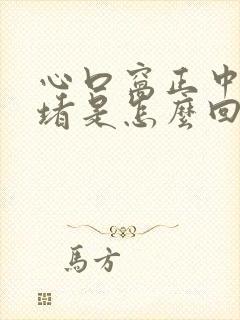 心口窩正中
堵是怎麼回
馬方